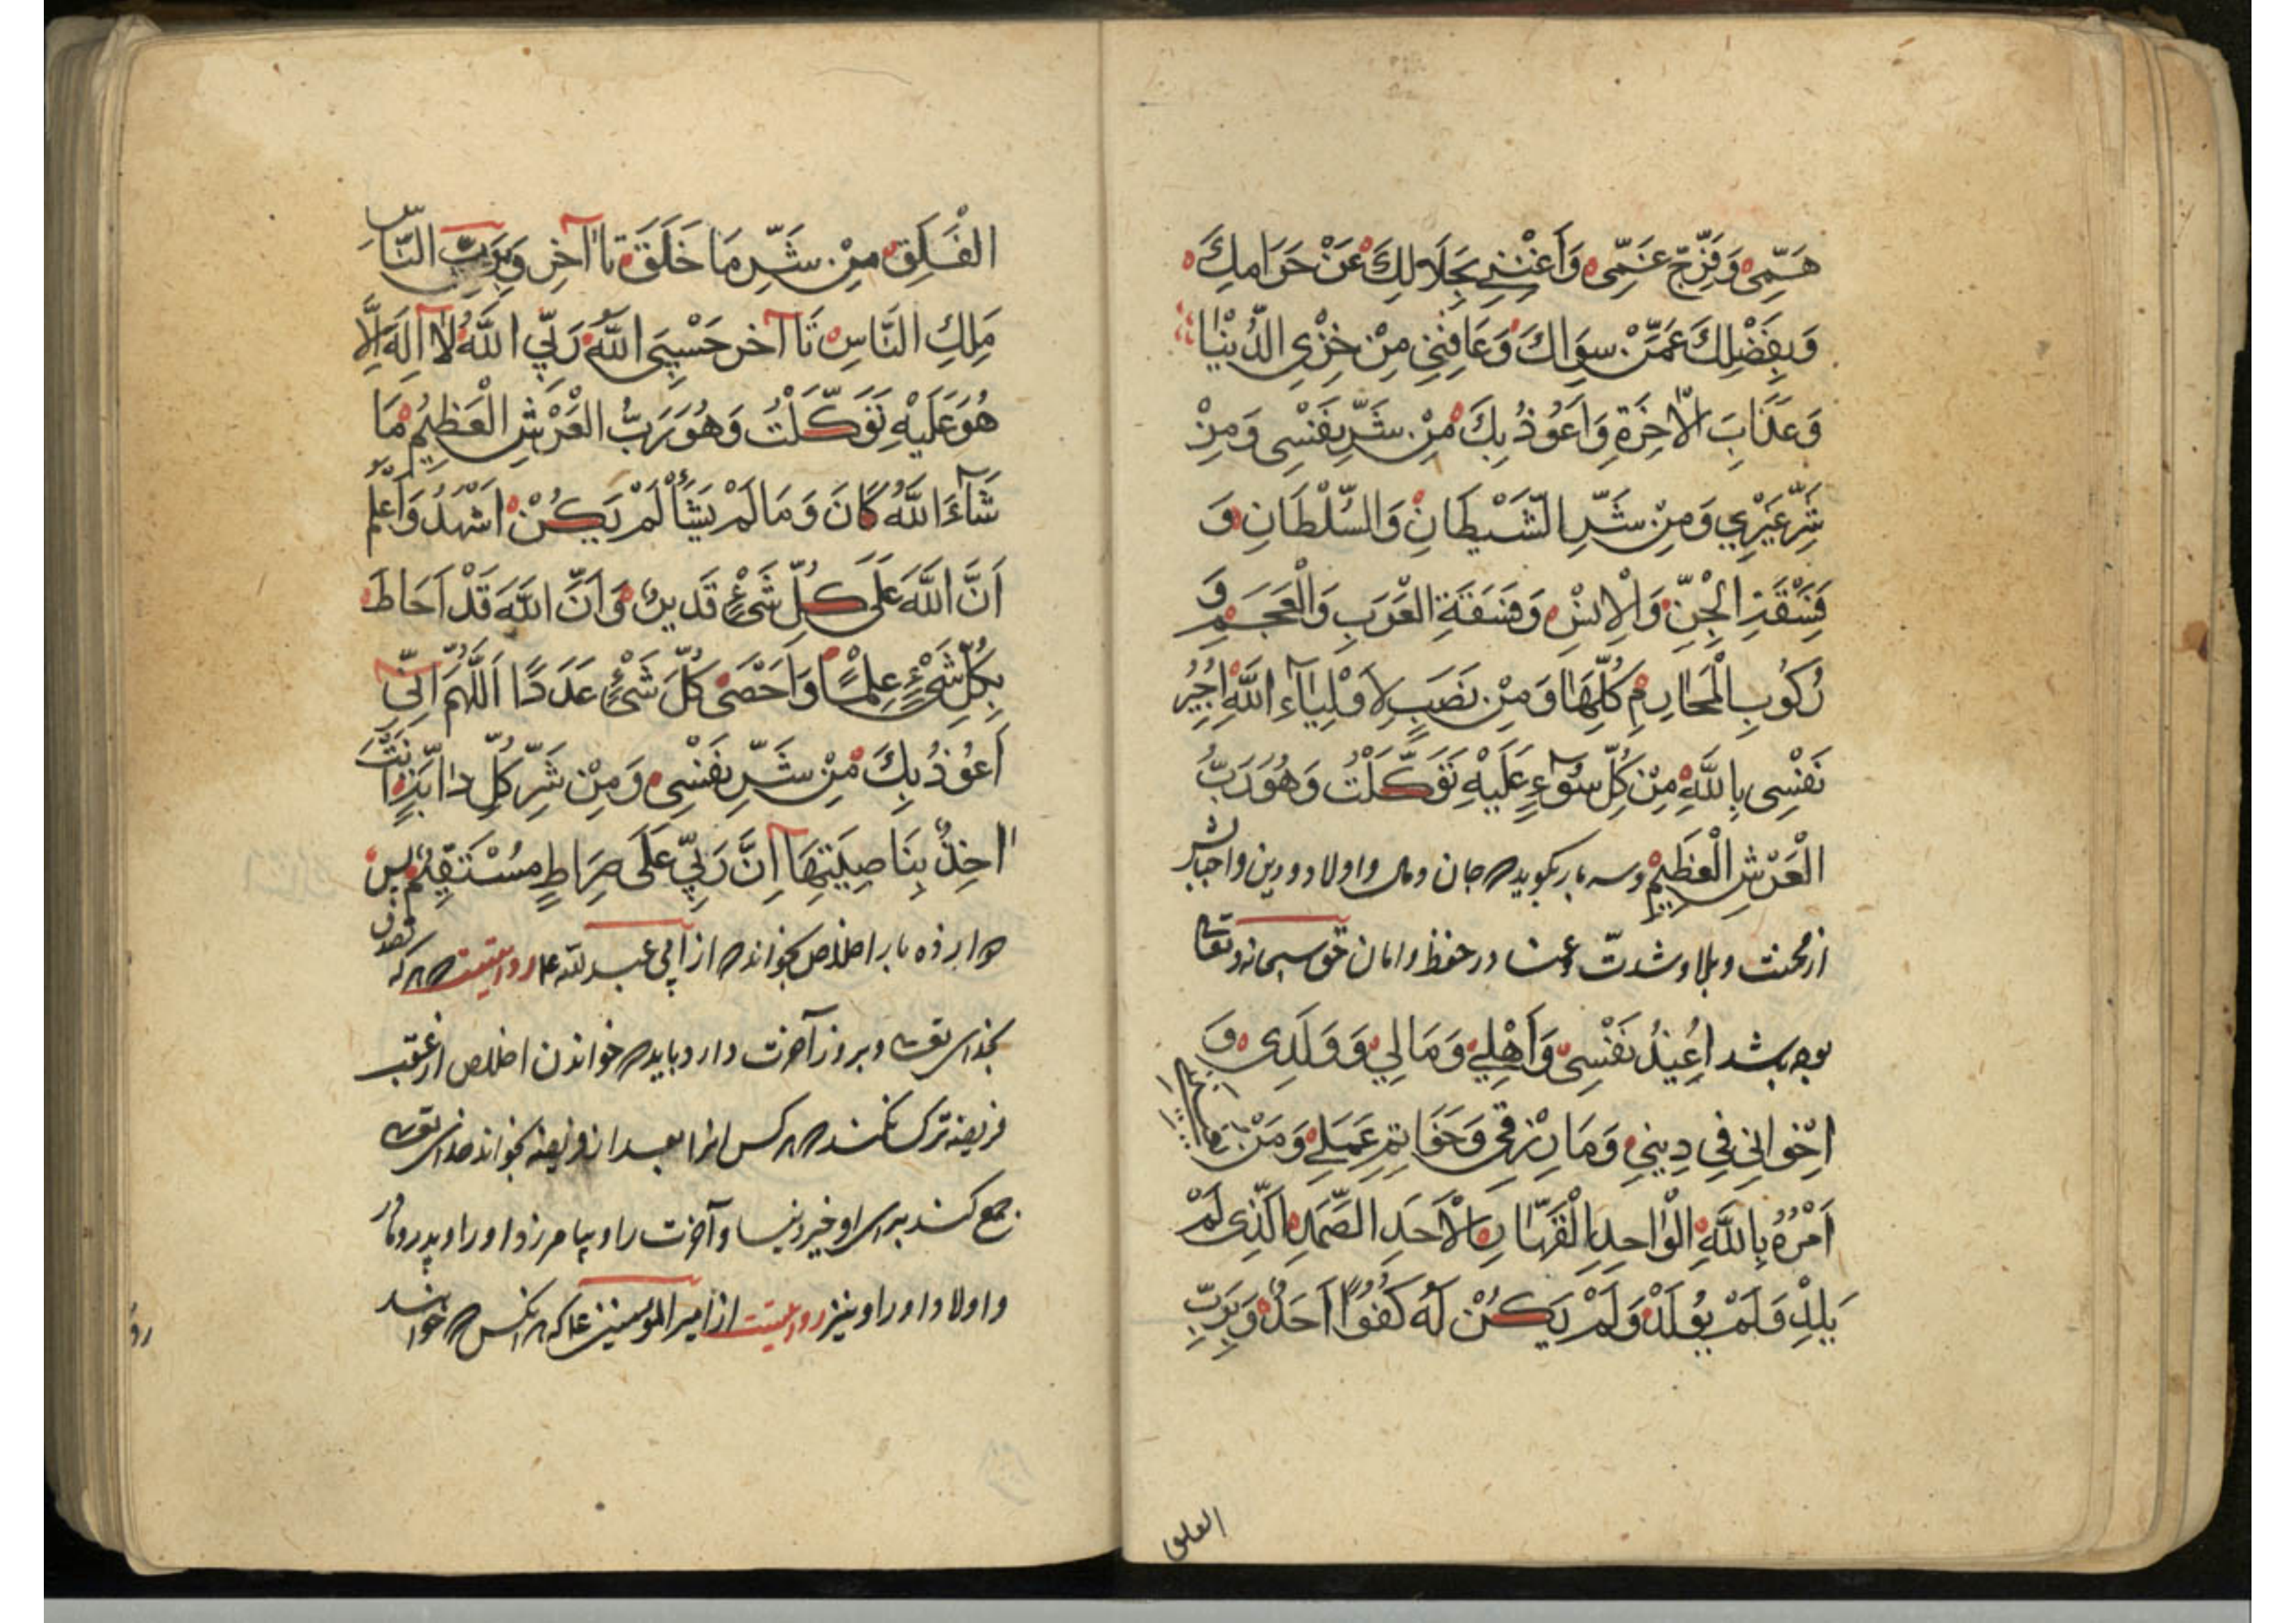 هَمِّی وَفَرِّجْ غَمِّی وَاَغْنِنِی بِحَلَالِكَ عَنْ حَرَامِكَ
وَبِفَضْلِكَ عَمَّنْ سِوَاكَ وَعَافِنِی مِنْ خِزْیِ الدُّنْیَا
وَعَذَابَ الْآخِرَةِ وَاَعُوذُ بِكَ مِنْ شَرِّ نَفْسِی وَمِنْ
شَرِّ غَیْرِی وَمِنْ شَرِّ الشَّیْطَانِ وَالسُّلْطَانِ وَ
فَسَقَةِ الْجِنِّ وَالْاِنْسِ وَفَسَقَةِ الْعَرَبِ وَالْعَجَمِ وَ
رُكُوبِ الْمَحَارِمِ كُلِّهَا وَمِنْ نَصَبٍ لِاَوْلِیَآءِ اللّٰهِ اُجِیرُ
نَفْسِی بِاللّٰهِ مِنْ كُلِّ سُوٓءٍ عَلَیْهِ تَوَكَّلْتُ وَهُوَ رَبُّ
الْعَرْشِ الْعَظِیمِ وسه بار بکوید که جان ومال واولاد ودین واحبابش
از محنت وبلا وشدت وعنا در حفظ وامان حق سبحانه وتعالی
بوده باشد اُعِیذُ نَفْسِی وَاَهْلِی وَمَالِی وَوَلَدِی وَ
اِخْوَانِی فِی دِینِی وَمَا رَزَقَنِی وَخَوَاتِیمَ عَمَلِی وَمَنْ
اَمْرُهُ بِاللّٰهِ الْوَاحِدِ الْقَهَّارِ الْاَحَدِ الصَّمَدِ الَّذِی لَمْ
یَلِدْ وَلَمْ یُولَدْ وَلَمْ یَكُنْ لَهُ كُفُوًا اَحَدٌ وَبِرَبِّ
الفلق
الْفَلَقِ مِنْ شَرِّ مَا خَلَقَ تا آخر وَبِرَبِّ النَّاسِ
مَلِكِ النَّاسِ تا آخر حَسْبِیَ اللّٰهُ رَبِّی اللّٰهُ لَا اِلٰهَ اِلَّا
هُوَ عَلَیْهِ تَوَكَّلْتُ وَهُوَ رَبُّ الْعَرْشِ الْعَظِیمِ مَا
شَآءَ اللّٰهُ كَانَ وَمَا لَمْ یَشَأْ لَمْ یَكُنْ اَشْهَدُ وَاَعْلَمُ
اَنَّ اللّٰهَ عَلَی كُلِّ شَیْءٍ قَدِیرٌ وَاَنَّ اللّٰهَ قَدْ اَحَاطَ
بِكُلِّ شَیْءٍ عِلْمًا وَاَحْصَی كُلَّ شَیْءٍ عَدَدًا اَللّٰهُمَّ اِنِّی
اَعُوذُ بِكَ مِنْ شَرِّ نَفْسِی وَمِنْ شَرِّ كُلِّ دَابَّةٍ اَنْتَ
اٰخِذٌ بِنَاصِیَتِهَا اِنَّ رَبِّی عَلَی صِرَاطٍ مُسْتَقِیمٍ پس
ده بار اخلاص بخواند که از ابی عبد الله ع روایتست که هر که
بخدای تعالی وبروز آخرت دارد باید که خواندن اخلاص از عقب
فریضه ترک نکند که هر کس انرا بعد از فریضه بخواند خدای تعالی
جمع کند برای او خیر دنیا وآخرت را وبیامرزد او را وپدر ومادر
واولاد او را ونیز روایتست از امیر المؤمنین ع که هر انکس که خواند